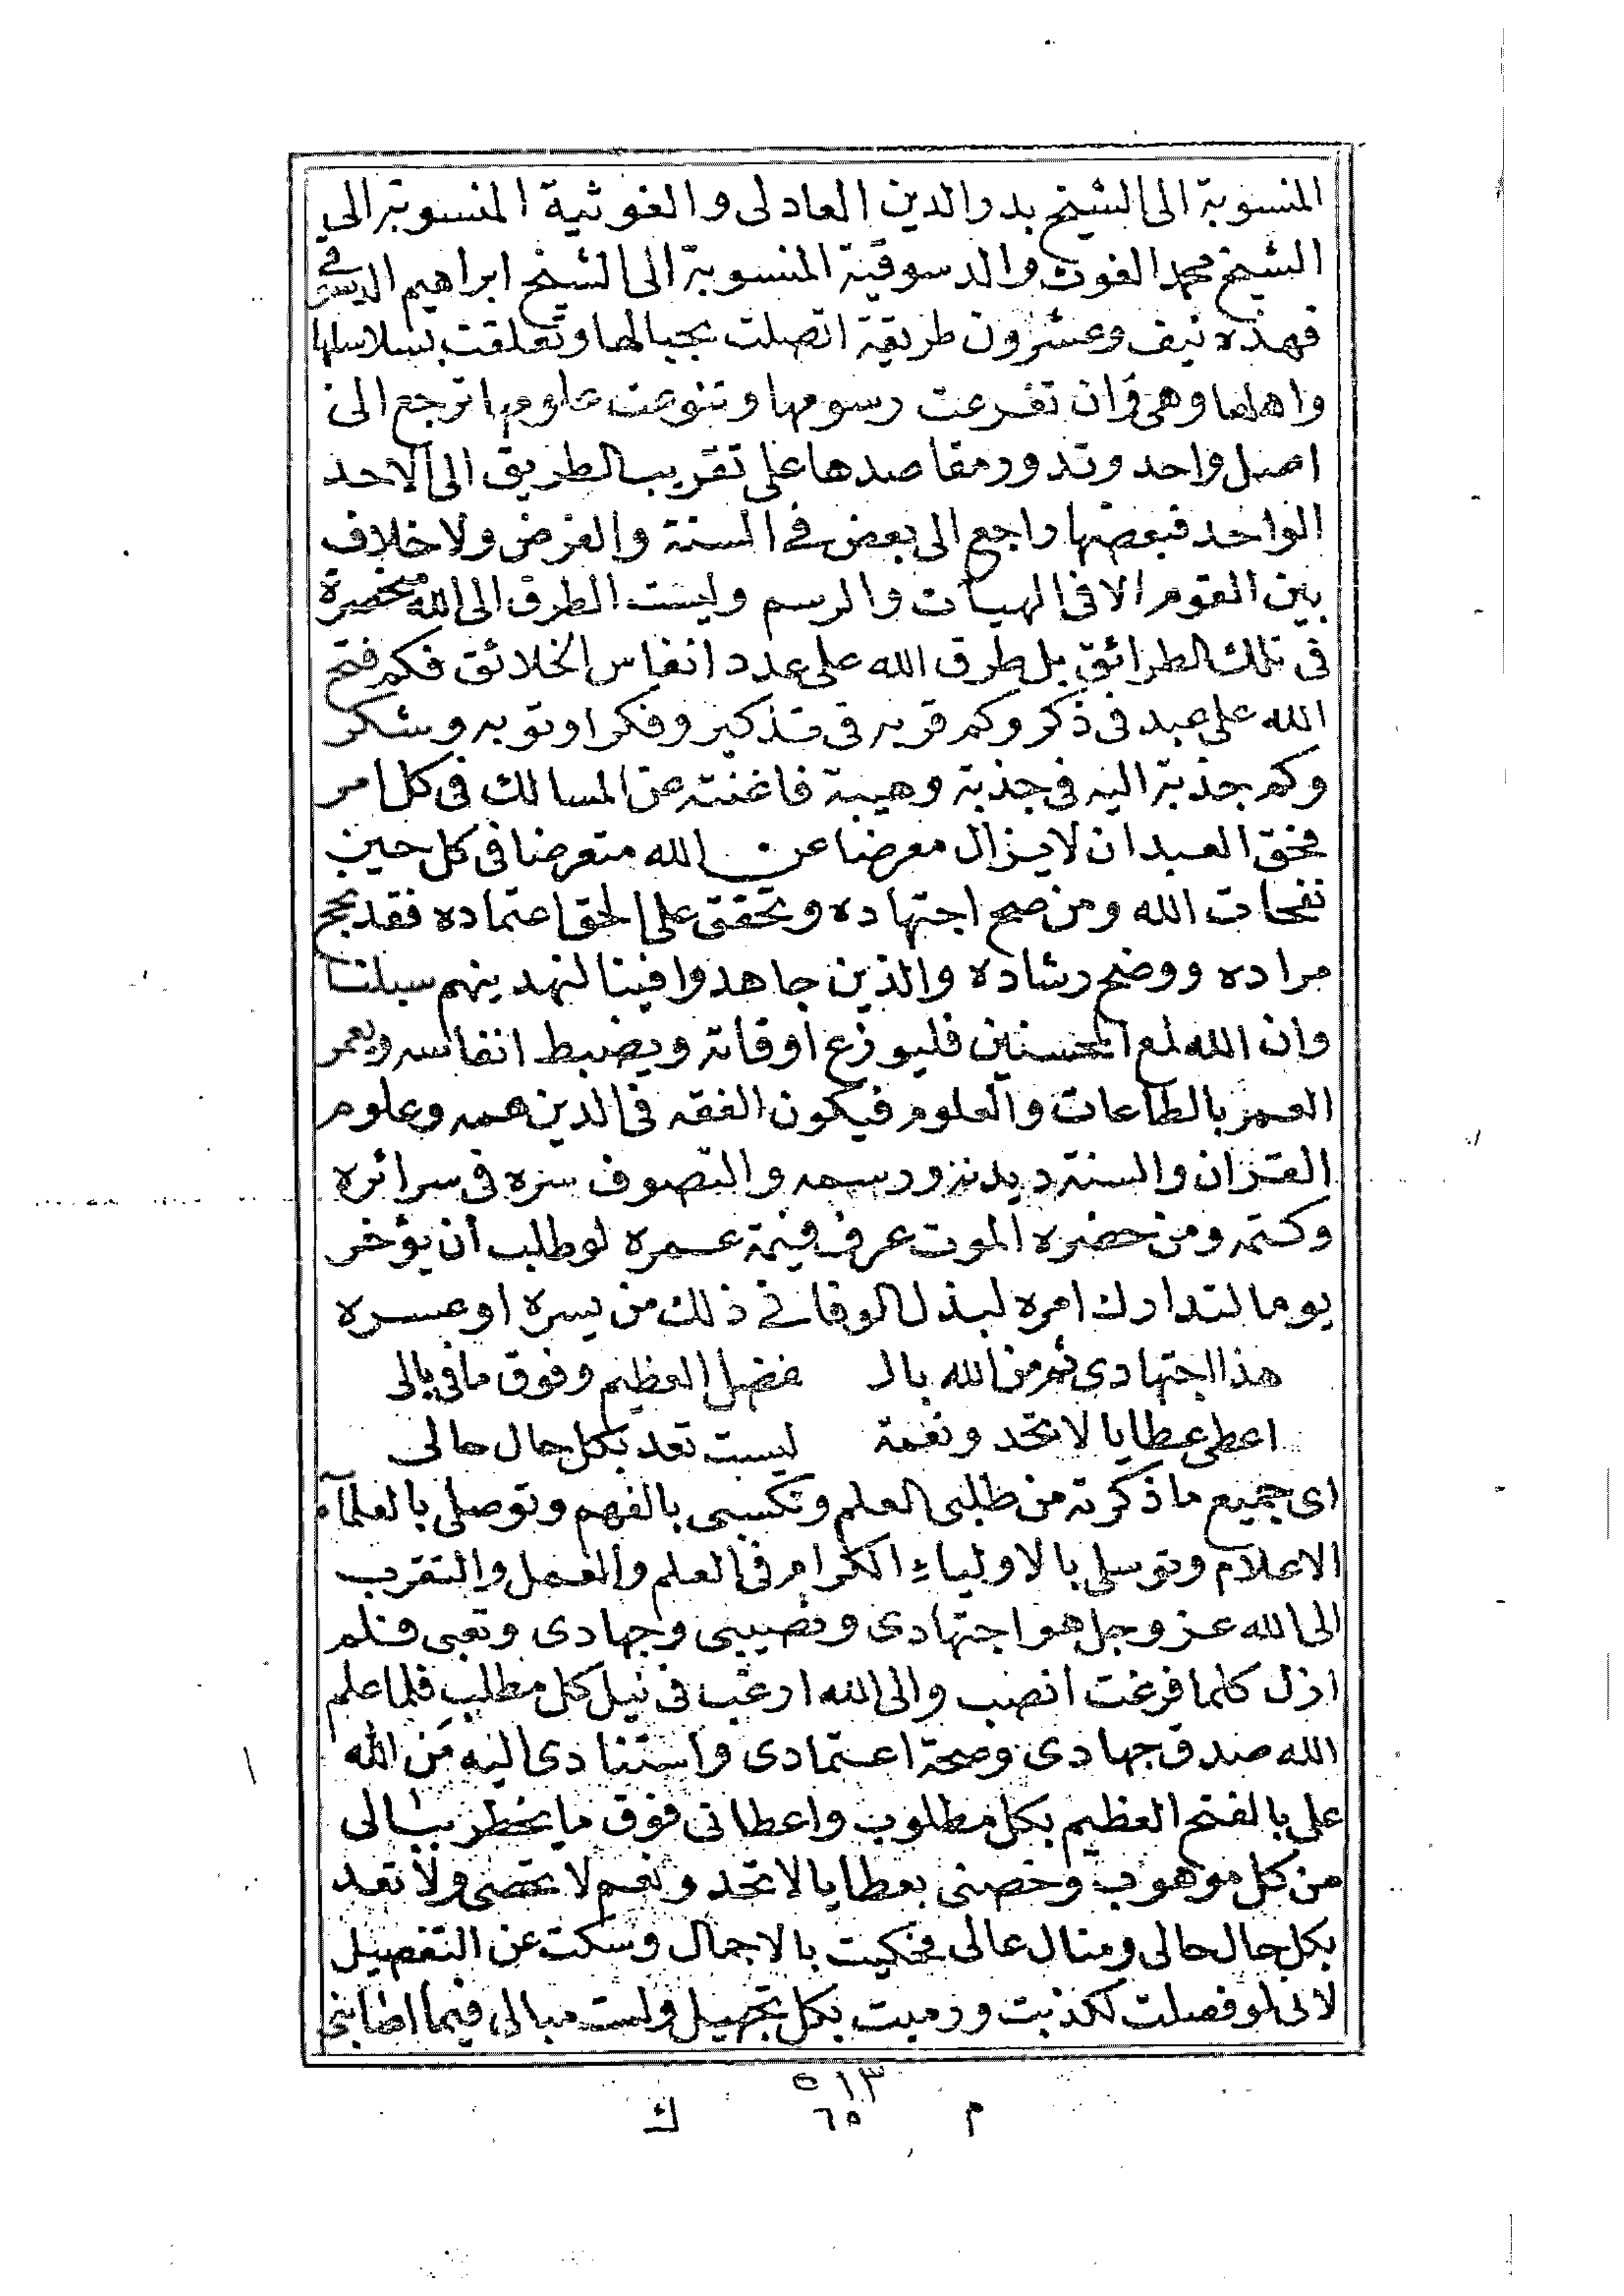 المنسوبة الى الشيخ بدر الدين العادلى والغوثية المنسوبة الى
الشيخ محمد الغوث والدسوقية المنسوبة الى الشيخ ابراهيم الدسوقى
فهذه نيف وعشرون طريقة اتصلت بحبالها وتعلقت بسلاسلها
واهلها وهى وان تفرعت رسومها وتنوعت علومها ترجع الى
اصل واحد وتدور مقاصدها على تقريب الطريق الى الاحد
الواحد فبعضها راجع الى بعض فى السنة والفرض ولا خلاف
بين القوم الا فى الهيات والرسم وليست الطرق الى الله منحصرة
فى تلك الطرائق بل طرق الله على عدد انفاس الخلائق فكم فتح
الله على عبد فى ذكر وكم قربه فى تذكير وفكر او توبه وشكر
وكم جذبة اليه فى جذبة وهيبة فاغنته عن المسالك فى كل امر
فحق العبد ان لا يزال معرضا عن الله متعرضا فى كل حين
نفحات الله ومن صح اجتهاده وتحقق على الحق اعتماده فقد نجح
مراده ووضح رشاده والذين جاهدوا فينا لنهدينهم سبلنا
وان الله لمع المحسنين فليوزع اوقاته ويضبط انفاسه ويعمر
العمر بالطاعات والعلوم فيكون الفقه فى الدين همه وعلوم
القران والسنة ديدنه ورسمه والتصوف سره فى سرائره
وكتمه ومن حضره الموت عرف قيمة عمره لو طلب ان يؤخر
يوما لتدارك امره لبذل الوفا فى ذلك من يسره او عسره
هذا اجتهادى ثم من الله بالـ فضل العظيم وفوق ما فى بالى
اعطى عطايا لا تحد ونعمة ليست تعد بكل حال حالى
اى جميع ما ذكرته من طلبى العلم وتكسبى بالفهم وتوصلى بالعلمآء
الاعلام وتوسلى بالاولياء الكرام فى العلم والعمل والتقرب
الى الله عز وجل هو اجتهادى ونصيبى وجهادى وتعبى فلم
ازل كلما فرغت انصب والى الله ارغب فى نيل كل مطلب فلما علم
الله صدق جهادى وصحة اعتمادى واستنادى اليه من الله
على بالفتح العظيم بكل مطلوب واعطانى فوق ما يخطر ببالى
من كل موهوب وخصنى بعطايا لا تحد ونعم لا تحصى ولا تعد
بكل حال حالى ومنال عالى فحكيت بالاجمال وسكت عن التفصيل
لانى لو فصلت لكذبت ورميت بكل تجهيل ولست مبالى فيما
٥١٣
م ٦٥ ك